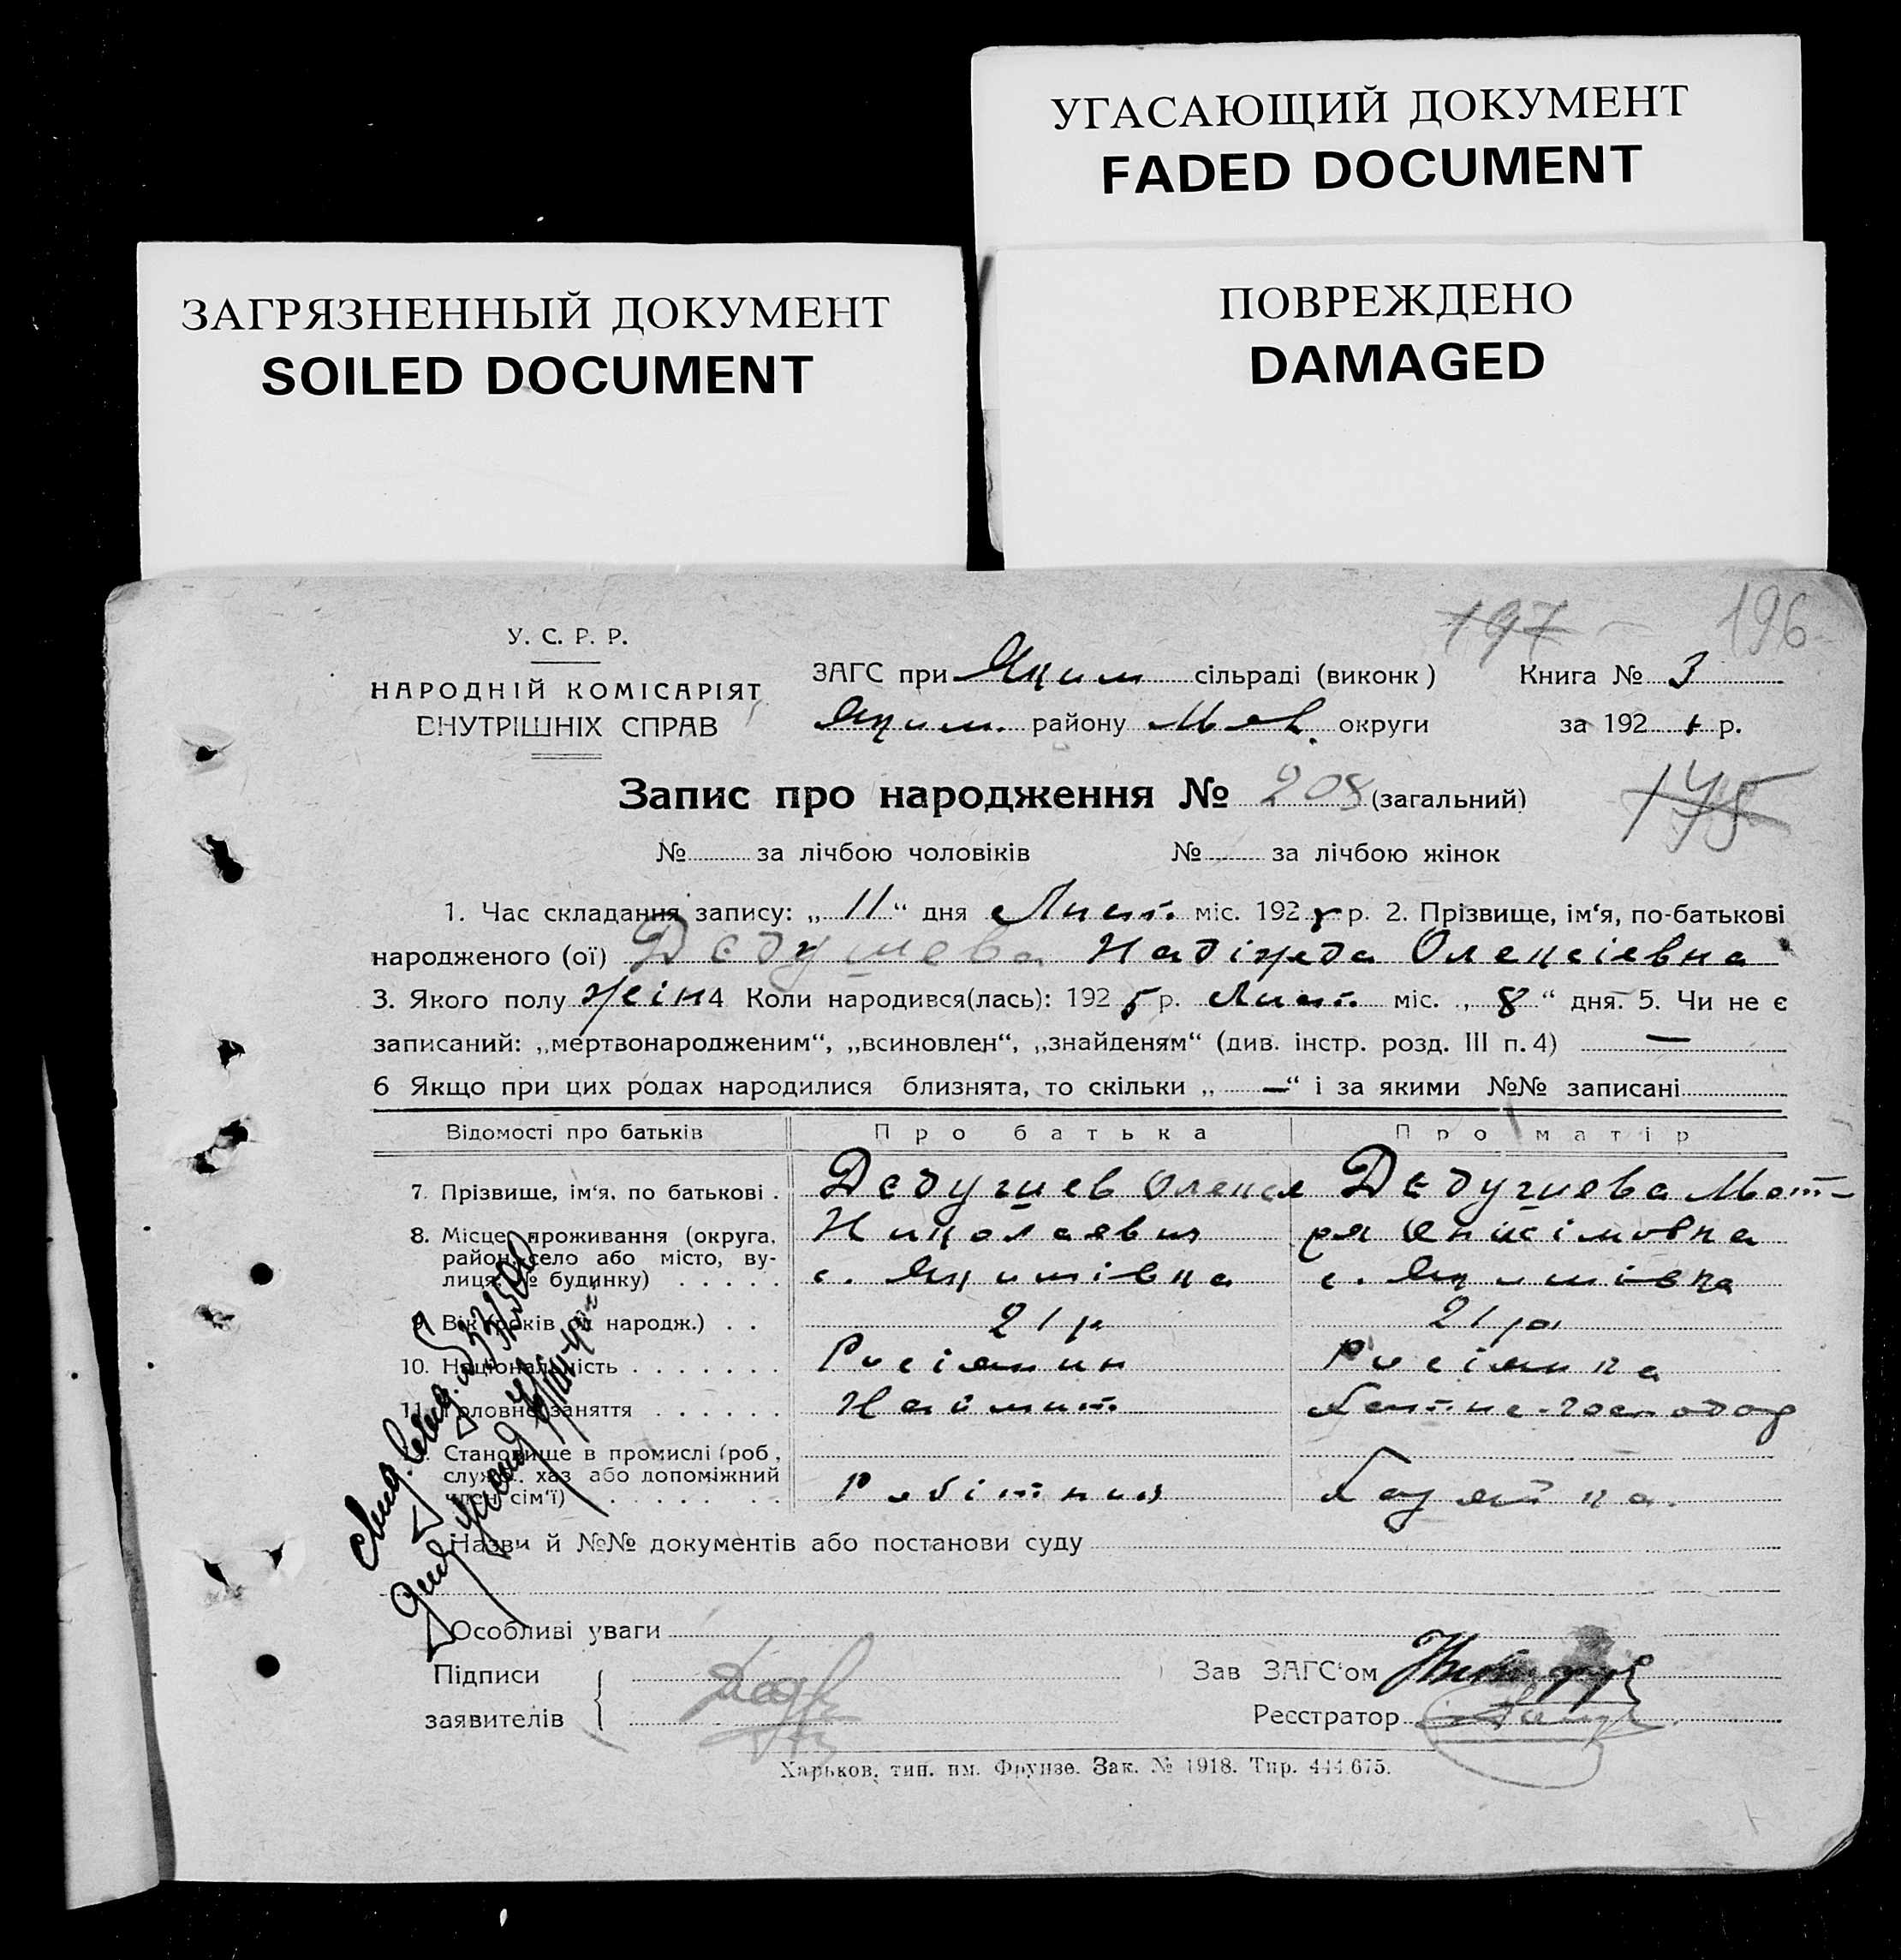 УГАСАЮЩИЙ ДОКУМЕНТ
FADED DOCUMENT
ЗАГРЯЗНЕННЫЙ ДОКУМЕНТ
SOILED DOCUMENT
ПОВРЕЖДЕНО
DAMAGED
197 196
У. С. Р. Р.
НАРОДНІЙ КОМІСАРІЯТ
ВНУТРІШНІХ СПРАВ
ЗАГС при сільраді (виконк) Книга № 3
району округи за 192 р.
Запис про народження № 208 (загальний)
175
№ за лічбою чоловіків № за лічбою жінок
1. Час складання запису: „11“ дня Лист. міс. 192 р. 2. Прізвище, ім‘я, по-батькові
народженого (ої) Дєдушева Надіжда Олексіевна
3. Якого полу жін 4 Коли народився(лась): 1925 р. Лист. міс. „8“ дня. 5. Чи не є
записаний: „мертвонародженим“, „всиновлен“, „знайденям“ (див. інстр. розд. III п. 4) —
6 Якщо при цих родах народилися близнята, то скільки „—“ і за якими №№ записані
Відомості про батьків Про батька Про матір
7. Прізвище, ім‘я, по батькові . Дєдушев Олексе Дєдушева Мот-
8. Місце проживання (округа, Николаевич ря
район, село або місто, ву-
лиця, № будинку) . . . . . с. с.
9. Вік (років од народж.) . . 21 р 21 рі
10. Національність . . . . . . . Росіянин Росіянка
11. Головне заняття . . . . . . Наймит господар
Становище в промислі (роб.,
служб., хаз або допоміжний
член сім‘ї) . . . . . . . Робітник
Назви й №№ документів або постанови суду
Особливі уваги
Підписи Зав ЗАГС‘ом
заявителів Реєстратор
Харьков, тип. им. Фрунзе. Зак. № 1918. Тир. 444.675.